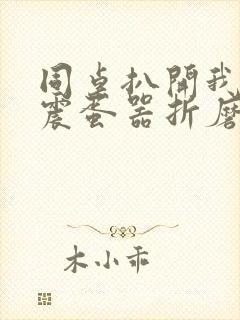 同桌扒開我
震蛋器折磨
木小乖